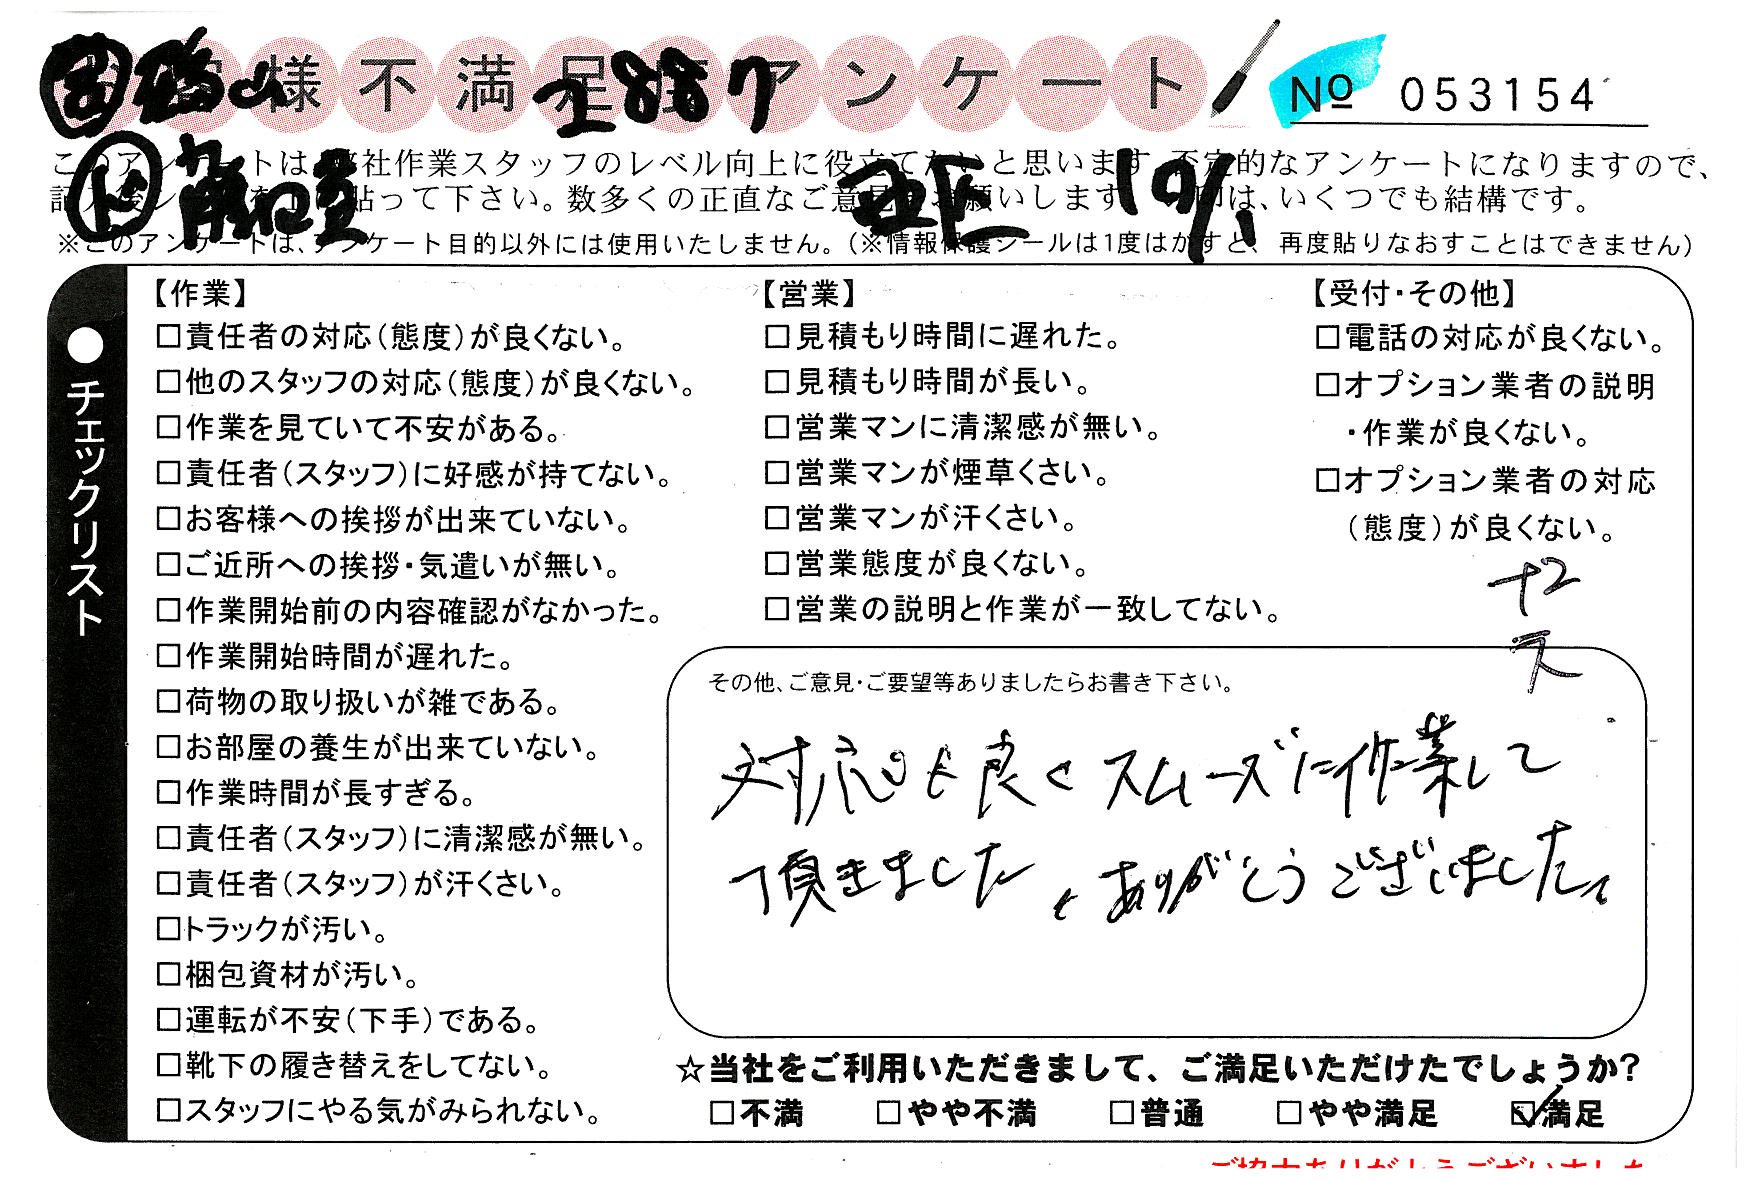 様不満足 アンケート
No 053154
2887
このアンケートは、弊社作業スタッフのレベル向上に役立てたいと思います。不定的なアンケートになりますので、
貼って下さい。数多くの正直なご意見をお願いします。 印は、いくつでも結構です。
19/1
※このアンケートは、アンケート目的以外には使用いたしません。(※情報保護シールは1度はがすと、再度貼りなおすことはできません)
●チェックリスト
【作業】
□責任者の対応(態度)が良くない。
□他のスタッフの対応(態度)が良くない。
□作業を見ていて不安がある。
□責任者(スタッフ)に好感が持てない。
□お客様への挨拶が出来ていない。
□ご近所への挨拶・気遣いが無い。
□作業開始前の内容確認がなかった。
□作業開始時間が遅れた。
□荷物の取り扱いが雑である。
□お部屋の養生が出来ていない。
□作業時間が長すぎる。
□責任者(スタッフ)に清潔感が無い。
□責任者(スタッフ)が汗くさい。
□トラックが汚い。
□梱包資材が汚い。
□運転が不安(下手)である。
□靴下の履き替えをしてない。
□スタッフにやる気がみられない。
【営業】
□見積もり時間に遅れた。
□見積もり時間が長い。
□営業マンに清潔感が無い。
□営業マンが煙草くさい。
□営業マンが汗くさい。
□営業態度が良くない。
□営業の説明と作業が一致してない。
【受付・その他】
□電話の対応が良くない。
□オプション業者の説明
・作業が良くない。
□オプション業者の対応
(態度)が良くない。
その他、ご意見・ご要望等ありましたらお書き下さい。
対応も良くスムーズに作業して
頂きました、ありがとうございました。
☆当社をご利用いただきまして、ご満足いただけたでしょうか?
□不満 □やや不満 □普通 □やや満足 ☑満足
ご協力ありがとうございました